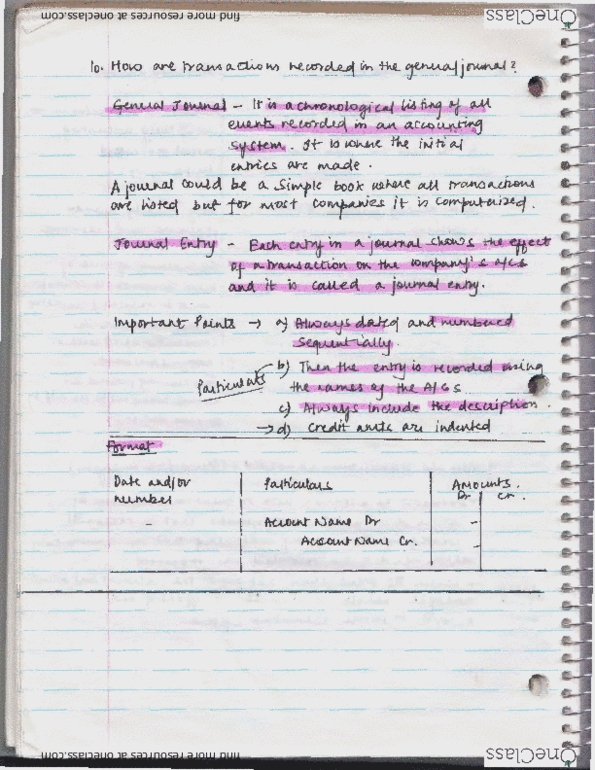 find more resources at oneclass.com
OneClass
10. How are transactions recorded in the general journal?
General Journal - It is a chronological listing of all
events recorded in an accounting
system. It is where the initial
entries are made.
A journal could be a simple book where all transactions
are listed but for most companies it is computerized.
Journal Entry - Each entry in a journal shows the effect
of a transaction on the company's a/cs
and it is called a journal entry.
Important Points → a) Always dated and numbered
sequentially.
b) Then the entry is recorded using
the names of the A/Cs
Particulars
c) Always include the description.
→ d) Credit amts are indented
Format
Date and/or Particulars Amounts.
number Dr Cr.
- Account Name Dr -
Account Name Cr. -
find more resources at oneclass.com
OneClass